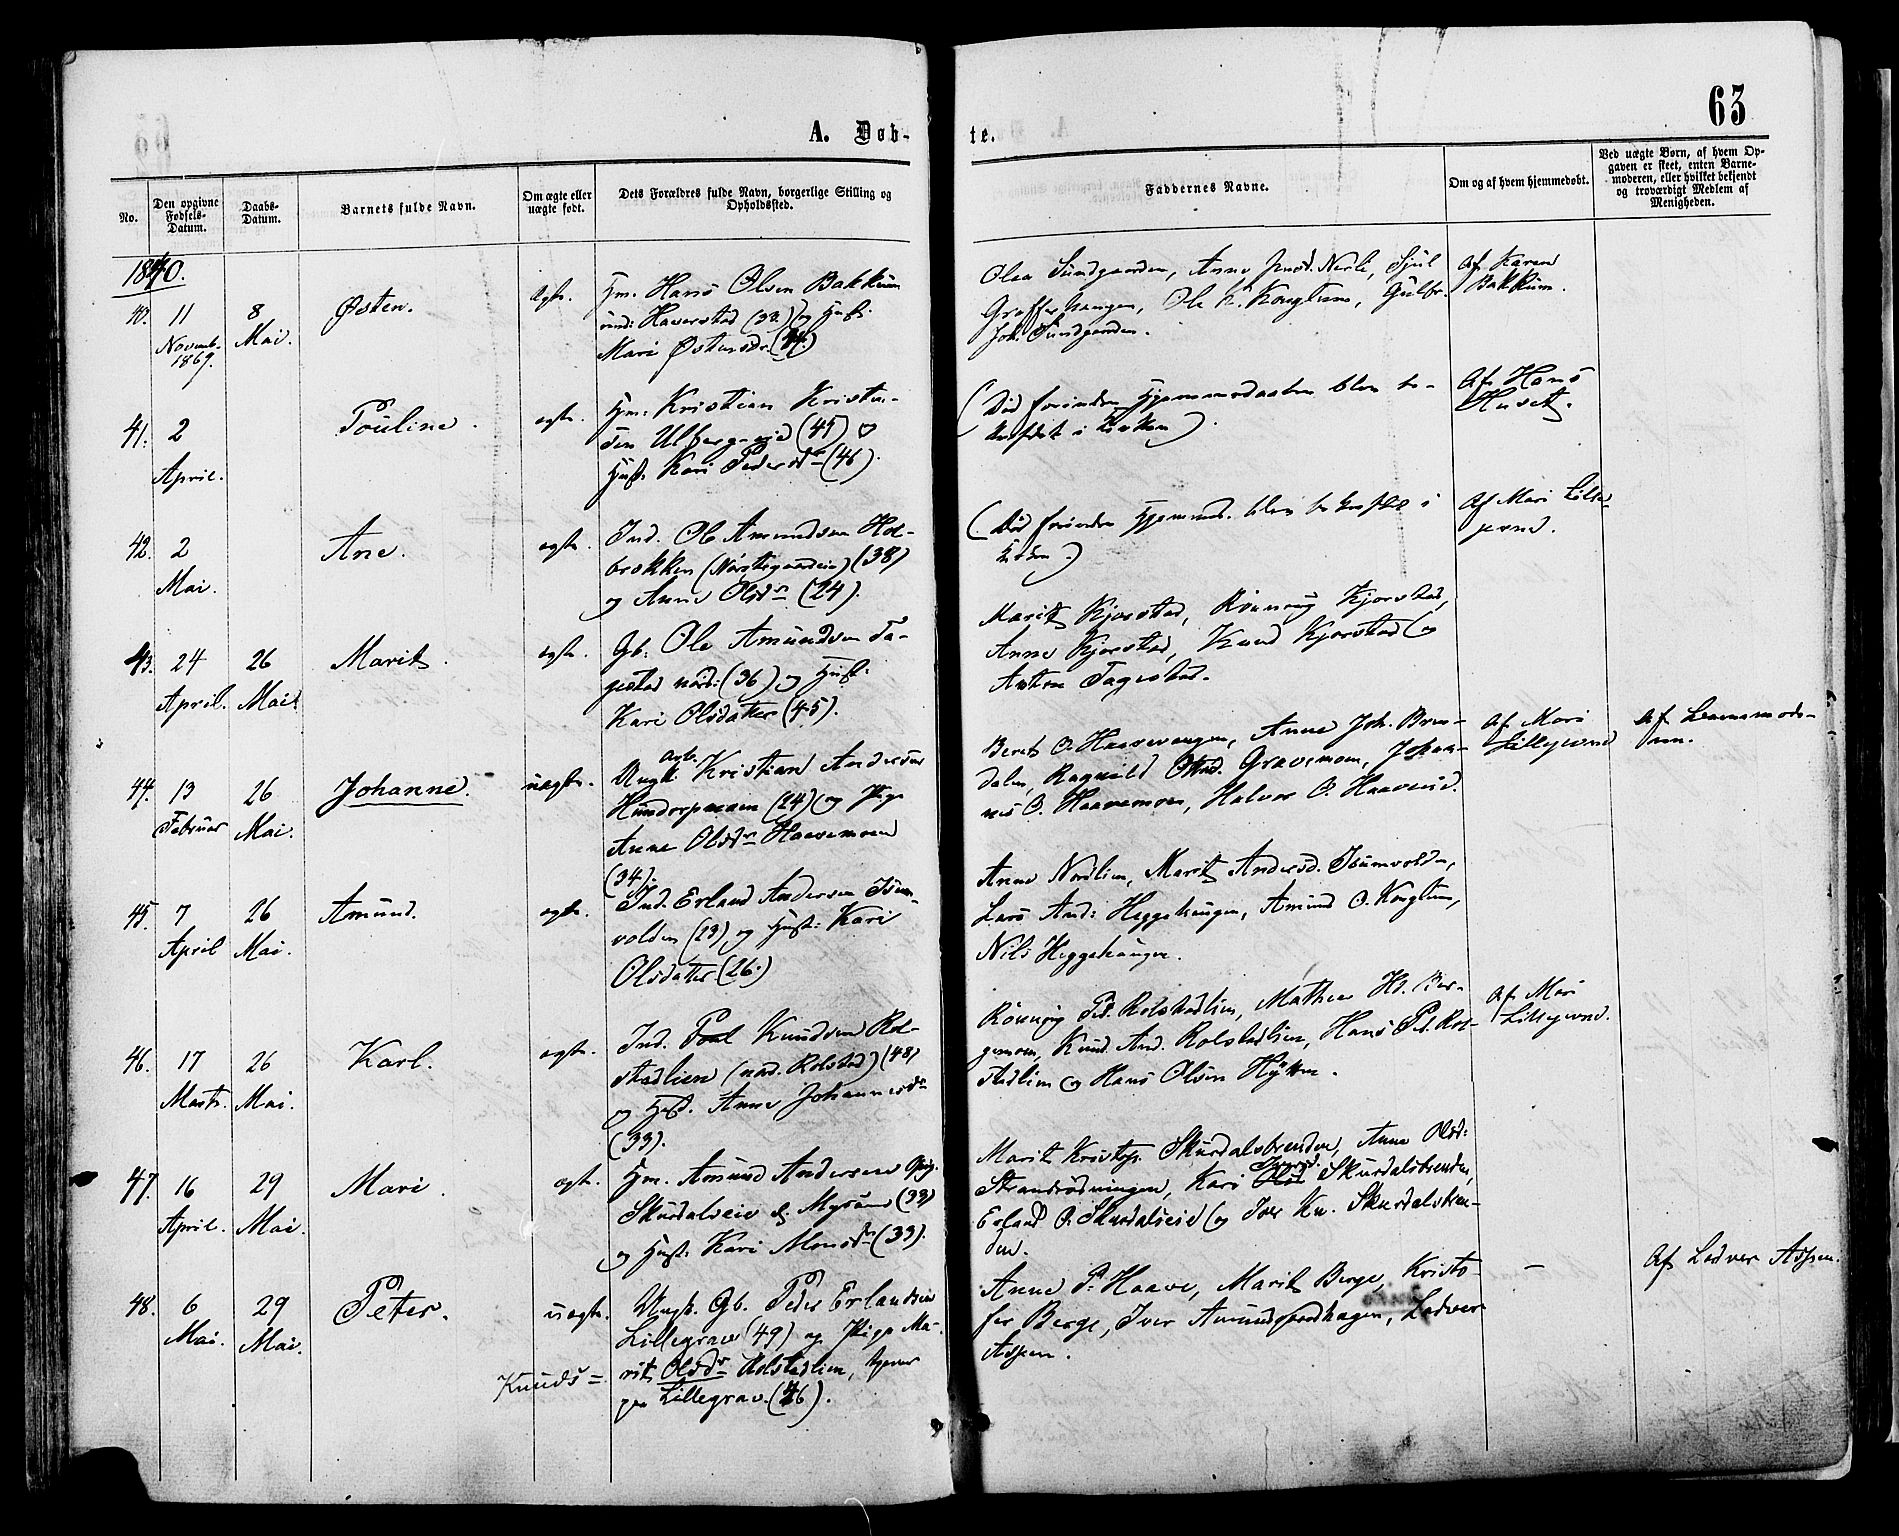 63
A. Døb-
te.
No.
Den opgivne Fødsels-Datum.
Daabs-Datum.
Barnets fulde Navn.
Om ægte eller uægte født.
Dets Forældres fulde Navn, borgerlige Stilling og Opholdssted.
Faddernes Navne.
Om og af hvem hjemmedøbt.
Ved uægte Børn, af hvem Opgaven er skeet, enten Barnemoderen, eller hvilket bekjendt og troværdigt Medlem af Menigheden.
1870.
40.
11
Novemb.
1869.
8
Mai.
Østen.
ægte.
Hm. Hans Olsen Bakkum
und: Haverstad (33) og Hust:
Mari Østensdr.
Olea Sundgaarden, Anne
Ole K. Kongstun,
Joh. Sundgaarden.
Af Karen
Bakkum.
41.
2
April.
Pouline.
ægte.
Hm: Kristian Kristen-
sen (45) og
Hust. Kari Pedersdr (46).
(Død forinden Hjemmedaaben blev be-
kræftet i Kirken).
Af Hans
Huset.
42.
2
Mai.
Ane.
ægte.
Ind. Ole Amundsen Hol-
brokken (Nørstegaardeie) (38)
og Anne Olsdr (24).
(Død forinden Hjemmed. blev bekræftet i
Kirken.)
Af Mari Lille-
43.
24
April.
26
Mai.
Marit.
ægte.
Gb. Ole Amundsen Ta-
gestad nørd: (36) og Hust:
Kari Olsdatter (45).
Marit Kjorstad, Rønnog Kjorstad,
Anne Kjorstad, Knud Kjorstad og
Anton Tagestad.
44.
13
Februar
26
Mai.
Johanne.
uægte.
Ungk. Kristian Andersen
(24) og Pige
Anne Olsdr Haavemoen
(34).
Berit O. Haavevangen, Anne Joh. Bræn-
dalen, Ragnild Gravemoen, Johan-
nes O. Haavemoen, Halvor O. Haaverud.
Af Mari
Lillejevnd
Af Barnemode-
ren.
45.
7
April
26
Mai.
Amund.
ægte.
Ind. Erland Andersen Isum-
volden (29) og Hust: Kari
Olsdatter (26.)
Anne Nordlien, Marit Andersd. Isumvolden,
Lars And: Heggehaugen, Amund O. Kongstun,
Nils Heggehaugen.
46.
17
Marts.
26
Mai.
Karl.
ægte.
Ind. Poul Knudsen Rol-
stadlien (nørd. Rolstad) (48)
og Hust. Anne Johannesdr
(33).
Rønnog Ped. Rolstadlien, Mathea H. Ber-
gemoen, Knud And. Rolstadlien, Hans Ped. Rol-
stadlien og Hans Olsen
Af Mari
Lillejevnd.
47.
16
April.
29
Mai.
Mari.
ægte.
Hm. Amund Andersen
Skurdalseie (33)
og Hust: Kari Monsdr (33).
Marit Kristop. Skurdalsbrenden, Anne Olsd:
Strandrødningen, Kari Olsd Iversd. Skurdalsbrenden,
Erland O. Skurdalseie og Iver Kn. Skurdalsbren-
den.
48.
6
Mai.
29
Mai.
Peter.
uægte.
Knuds =
Ungk. Gb. Peder Erlandsen
Lillegrav (49) og Pige Ma-
rit Olsdr Rolstadlien, tjener
paa Lillegrav.
Anne P. Haave, Marit Berge, Kristo-
fer Berge, Iver Amundgaardhagen, Ledver
Aspen.
–
Af Ledver Aspen.